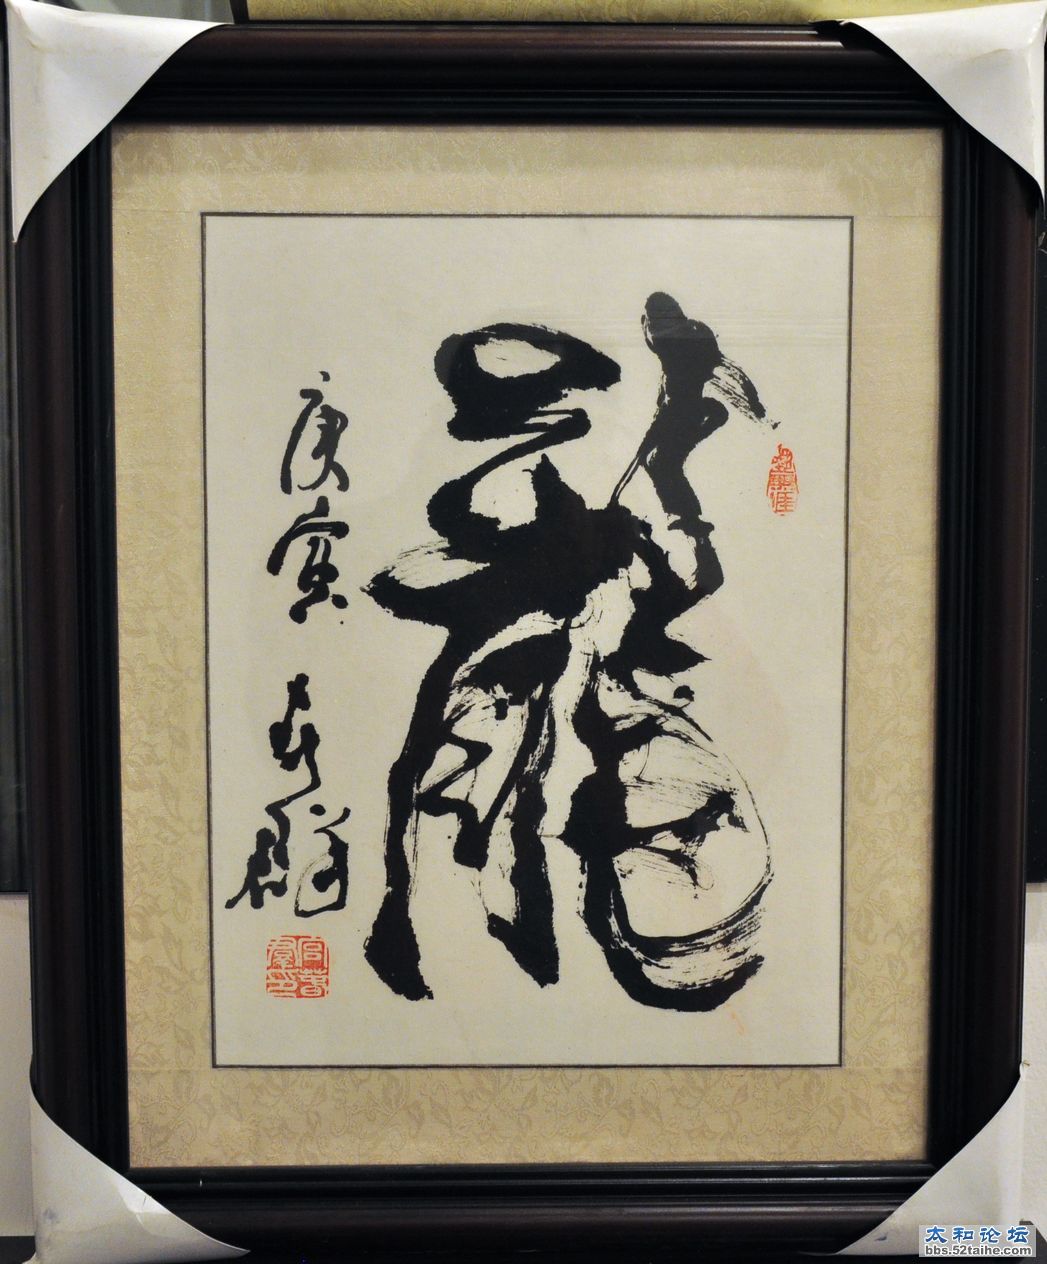 龍
庚寅 春群
太和论坛
bbs.52taihe.com